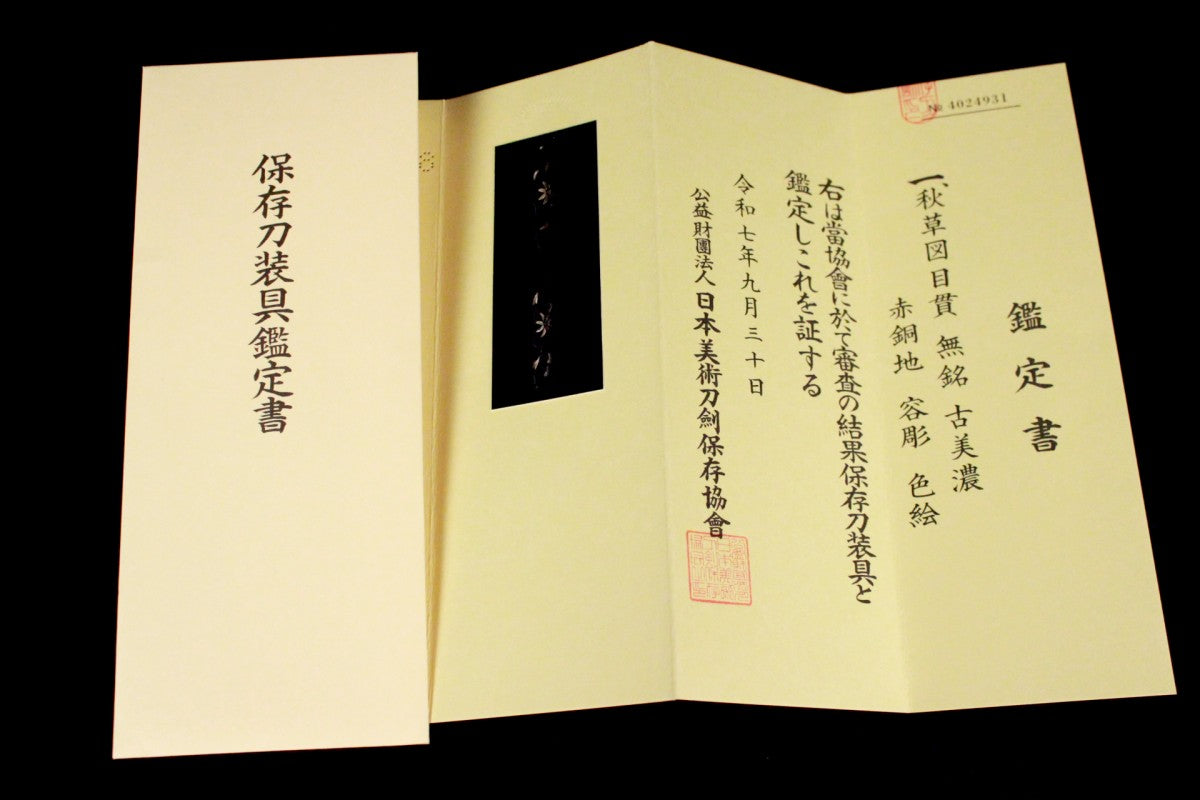 保存刀装具鑑定書
№ 4024931
鑑定書
一、秋草図目貫 無銘 古美濃
赤銅地 容彫 色絵
右は當協會に於て審査の結果保存刀装具と
鑑定しこれを証する
令和七年九月三十日
公益財團法人 日本美術刀劍保存協會